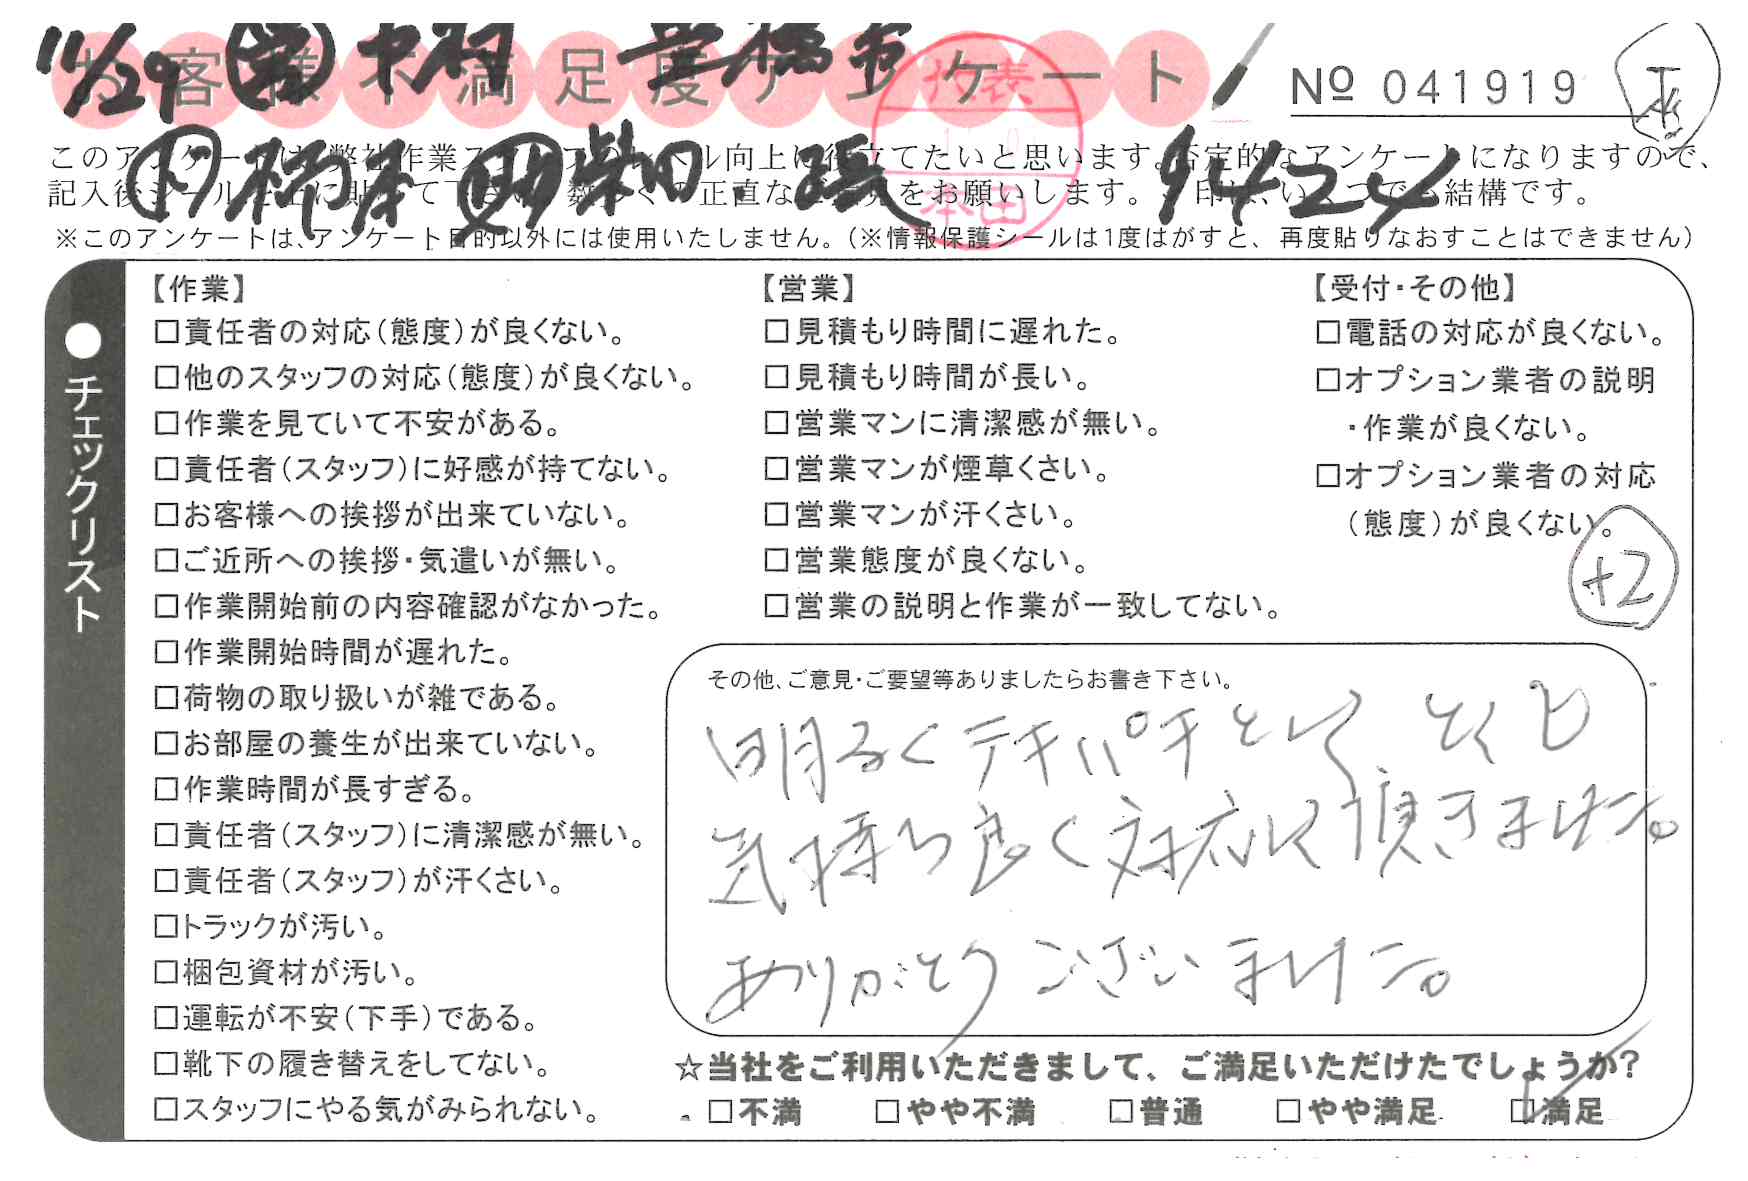 11/29 中村 豊橋市
お客様不満足度アンケート
代表
本田
No 041919
このアンケートは、弊社作業スタッフのレベル向上に役立てたいと思います。否定的なアンケートになりますので、
柿本 柴田 9424
記入後シールを上に貼って下さい。数多くの正直なご意見をお願いします。✓印は、いくつでも結構です。
※このアンケートは、アンケート目的以外には使用いたしません。(※情報保護シールは1度はがすと、再度貼りなおすことはできません)
●チェックリスト
【作業】
□責任者の対応(態度)が良くない。
□他のスタッフの対応(態度)が良くない。
□作業を見ていて不安がある。
□責任者(スタッフ)に好感が持てない。
□お客様への挨拶が出来ていない。
□ご近所への挨拶・気遣いが無い。
□作業開始前の内容確認がなかった。
□作業開始時間が遅れた。
□荷物の取り扱いが雑である。
□お部屋の養生が出来ていない。
□作業時間が長すぎる。
□責任者(スタッフ)に清潔感が無い。
□責任者(スタッフ)が汗くさい。
□トラックが汚い。
□梱包資材が汚い。
□運転が不安(下手)である。
□靴下の履き替えをしてない。
□スタッフにやる気がみられない。
【営業】
□見積もり時間に遅れた。
□見積もり時間が長い。
□営業マンに清潔感が無い。
□営業マンが煙草くさい。
□営業マンが汗くさい。
□営業態度が良くない。
□営業の説明と作業が一致してない。
【受付・その他】
□電話の対応が良くない。
□オプション業者の説明
・作業が良くない。
□オプション業者の対応
(態度)が良くない。
+2
その他、ご意見・ご要望等ありましたらお書き下さい。
明るくテキパキとして とても
気持ち良く対応して頂きました。
ありがとうございました。
☆当社をご利用いただきまして、ご満足いただけたでしょうか?
□不満 □やや不満 □普通 □やや満足 □満足